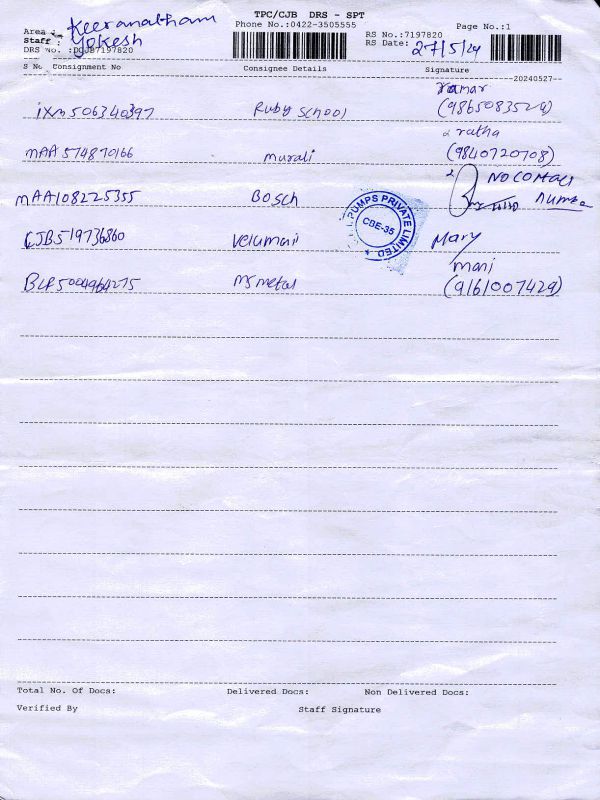 TPC/CJB DRS - SPT
Phone No.:0422-3505555
Page No.:1
Area : Keeranatham
Staff : Yokesh
DRS No. :DCJB7197820
RS No.:7197820
RS Date: 27/5/24
S No Consignment No Consignee Details Signature
20240527
ixm506340397 Ruby School Ramar
(9865083529)
MAA 574870166 murali ratha
(9840720708)
MAA108225355 Bosch No contact
Number
CJB519736860 Velumani Mary
BLR5004964275 Ms metal mani
(9161007429)
PUMPS PRIVATE LIMITED
CBE-35
Total No. Of Docs: Delivered Docs: Non Delivered Docs:
Verified By Staff Signature